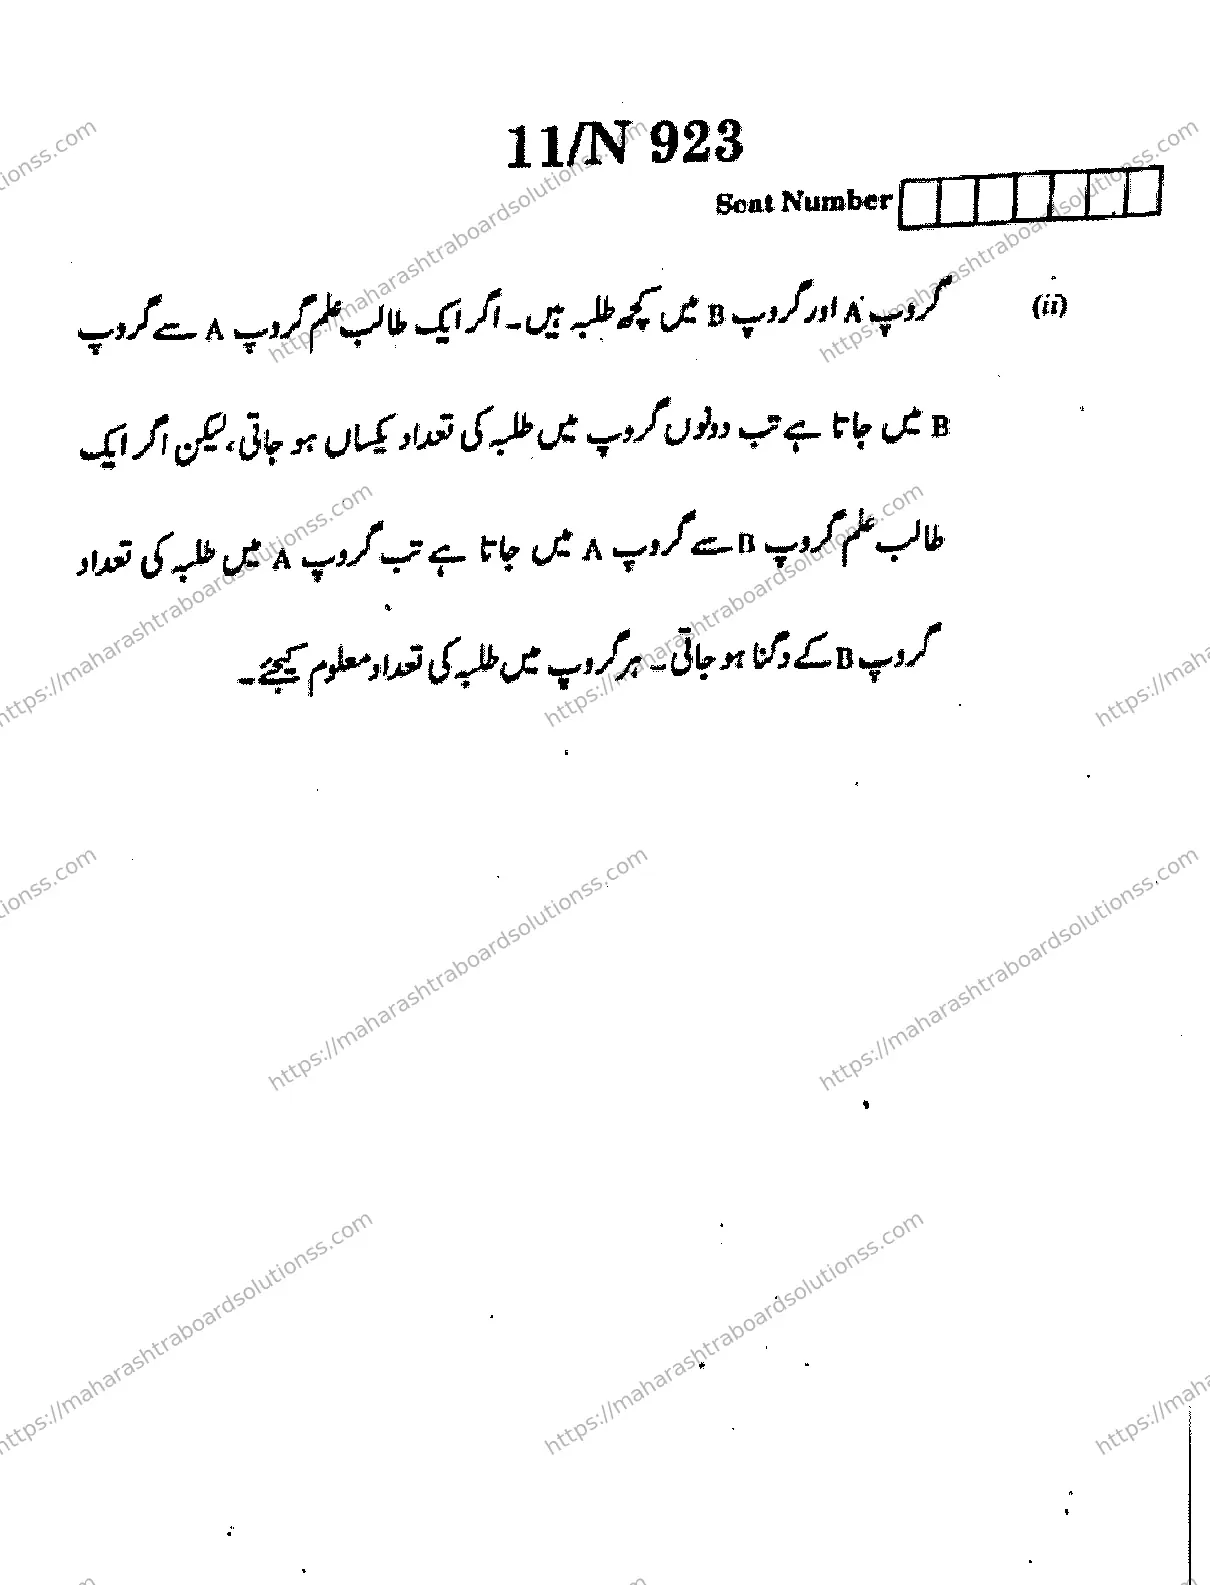 11/N 923
Seat Number
(ii) گروپ A اور گروپ B میں کچھ طلبہ ہیں۔ اگر ایک طالب علم گروپ A سے گروپ
B میں جاتا ہے تب دونوں گروپ میں طلبہ کی تعداد یکساں ہو جاتی، لیکن اگر ایک
طالب علم گروپ B سے گروپ A میں جاتا ہے تب گروپ A میں طلبہ کی تعداد
گروپ B کے دگنا ہو جاتی۔ ہر گروپ میں طلبہ کی تعداد معلوم کیجئے۔
https://maharashtraboardsolutionss.com